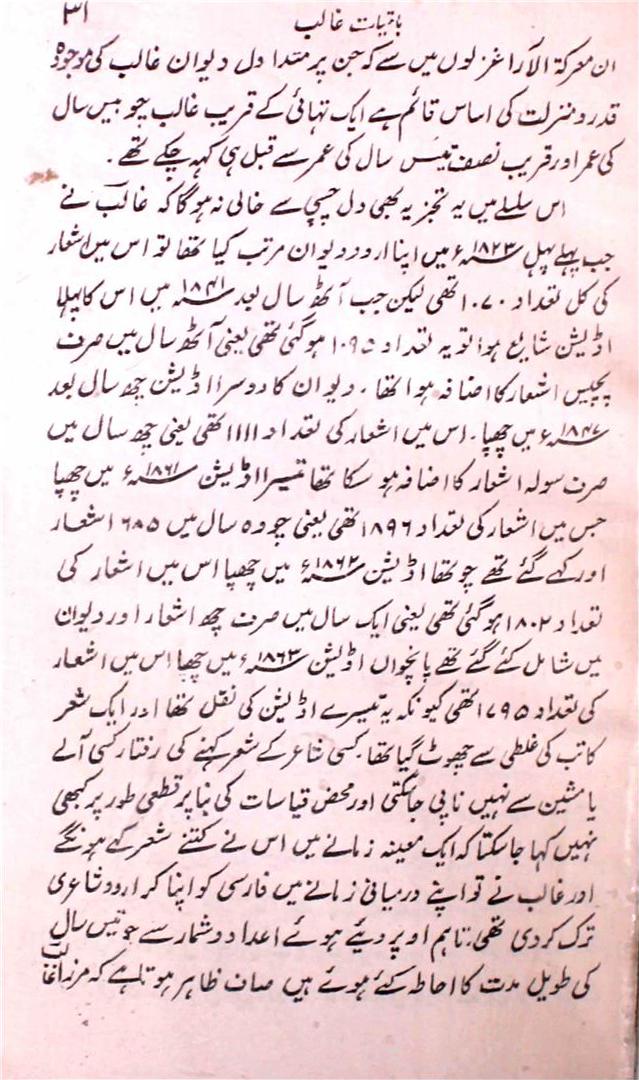 باقیات غالب ۳۱
ان معرکۃ الآرا غزلوں میں سے کہ جن پر متداول دیوان غالب کی موجودہ
قدر و منزلت کی اساس قائم ہے ایک تہائی کے قریب غالب چوبیس سال
کی عمر اور قریب نصف تیس سال کی عمر سے قبل ہی کہہ چکے تھے ۔
اس سلسلے میں یہ تجزیہ بھی دل چسپی سے خالی نہ ہوگا کہ غالب نے
جب پہلے پہل ۱۸۲۳ء میں اپنا اردو دیوان مرتب کیا تھا تو اس میں اشعار
کی کل تعداد ۱۰۷۰ تھی لیکن جب آٹھ سال بعد ۱۸۴۱ میں اس کا پہلا
اڈیشن شایع ہوا تو یہ تعداد ۱۰۹۵ ہو گئی تھی یعنی آٹھ سال میں صرف
پچیس اشعار کا اضافہ ہوا تھا ۔ دیوان کا دوسرا اڈیشن چھ سال بعد
۱۸۴۷ء میں چھپا ۔ اس میں اشعار کی تعداد ۱۱۱۱ تھی یعنی چھ سال میں
صرف سولہ اشعار کا اضافہ ہو سکا تھا تیسرا اڈیشن ۱۸۶۱ء میں چھپا
جس میں اشعار کی تعداد ۱۸۹۶ تھی یعنی چودہ سال میں ۶۸۵ اشعار
اور کہے گئے تھے چوتھا اڈیشن ۱۸۶۲ء میں چھپا اس میں اشعار کی
تعداد ۱۸۰۲ ہو گئی تھی یعنی ایک سال میں صرف چھ اشعار اور دیوان
میں شامل کئے گئے تھے پانچواں اڈیشن ۱۸۶۳ء میں چھپا اس میں اشعار
کی تعداد ۱۷۹۵ تھی کیونکہ یہ تیسرے اڈیشن کی نقل تھا اور ایک شعر
کاتب کی غلطی سے چھوٹ گیا تھا ۔ کسی شاعر کے شعر کہنے کی رفتار کسی آلے
یا مشین سے نہیں ناپی جا سکتی اور محض قیاسات کی بنا پر قطعی طور پر کبھی
نہیں کہا جا سکتا کہ ایک معینہ زمانے میں اس نے کتنے شعر کہے ہونگے
اور غالب نے تو اپنے درمیانی زمانے میں فارسی کو اپنا کر اردو شاعری
ترک کر دی تھی ۔ تاہم اوپر دیئے ہوئے اعداد و شمار سے جو تیس سال
کی طویل مدت کا احاطہ کئے ہوئے ہیں صاف ظاہر ہوتا ہے کہ مرزا غالب